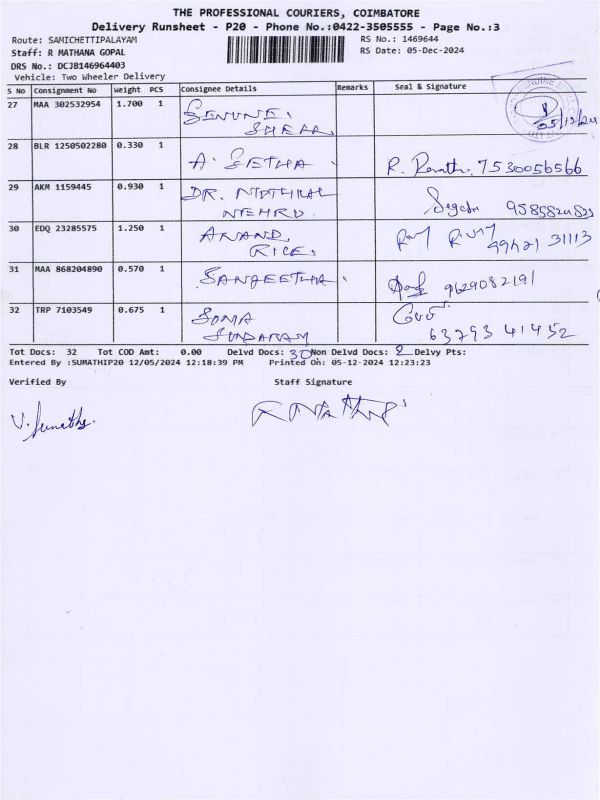 THE PROFESSIONAL COURIERS, COIMBATORE
Delivery Runsheet - P20 - Phone No.:0422-3505555 - Page No.:3
Route: SAMICHETTIPALAYAM RS No.: 1469644
Staff: R MATHANA GOPAL RS Date: 05-Dec-2024
DRS No.: DCJB146964403
Vehicle: Two Wheeler Delivery
S No Consignment No Weight PCS Consignee Details Remarks Seal & Signature
27 MAA 302532954 1.700 1 GENUNE. 05/12/24
SHEAR
28 BLR 1250502280 0.330 1 A. SETHA R. Ramth. 7530056566
29 AKM 1159445 0.930 1 DR.
NEHRU
30 EDQ 23285575 1.250 1 ANAND 99421 31113
RICE.
31 MAA 868204890 0.570 1 SANGEETHA. 9629082191
32 TRP 7103549 0.675 1 SOMA
SUNDARAM 63793 41452
Tot Docs: 32 Tot COD Amt: 0.00 Delvd Docs: 30 Non Delvd Docs: 2 Delvy Pts:
Entered By :SUMATHIP20 12/05/2024 12:18:39 PM Printed On: 05-12-2024 12:23:23
Verified By Staff Signature
V. Sumathy.